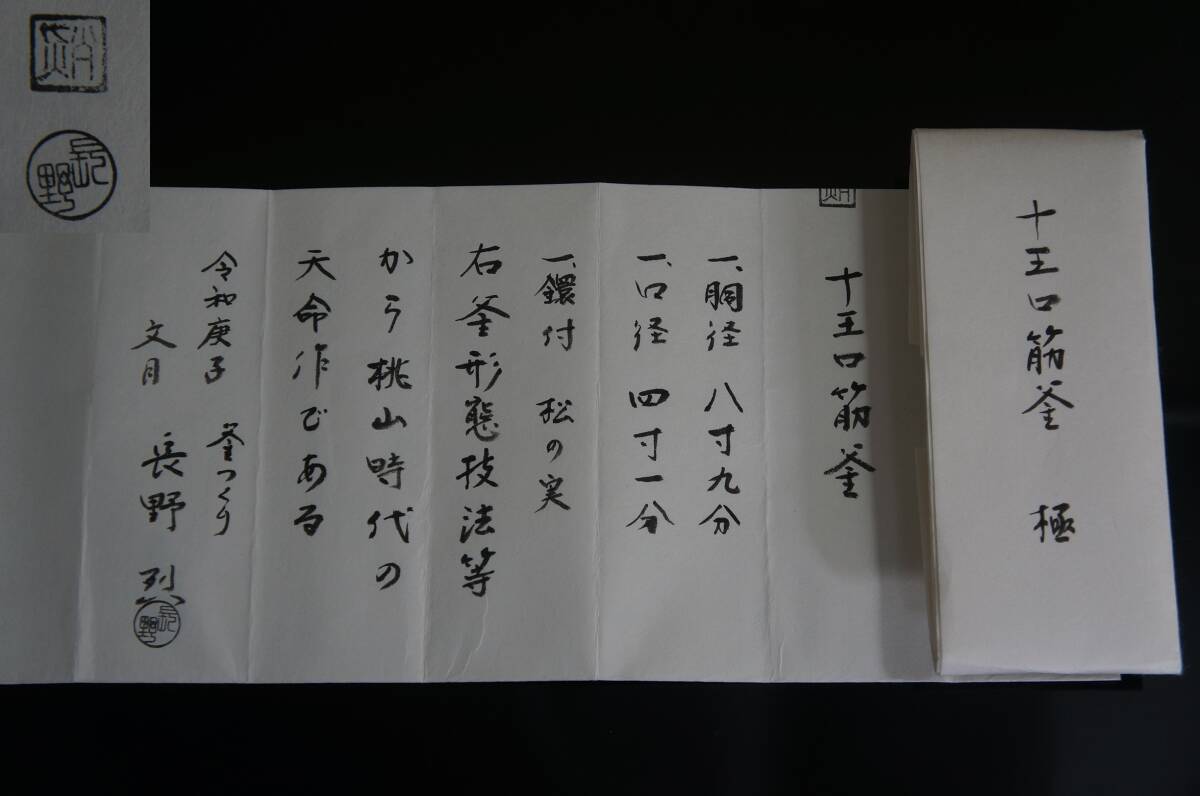 十王口筋釜　極
十王口筋釜
一、胴径　八寸九分
一、口径　四寸一分
一、鐶付　松の実
右釜形態技法等
から桃山時代の
天命作である
令和庚子　釜つくり
文月　長野　烈
長野
長野